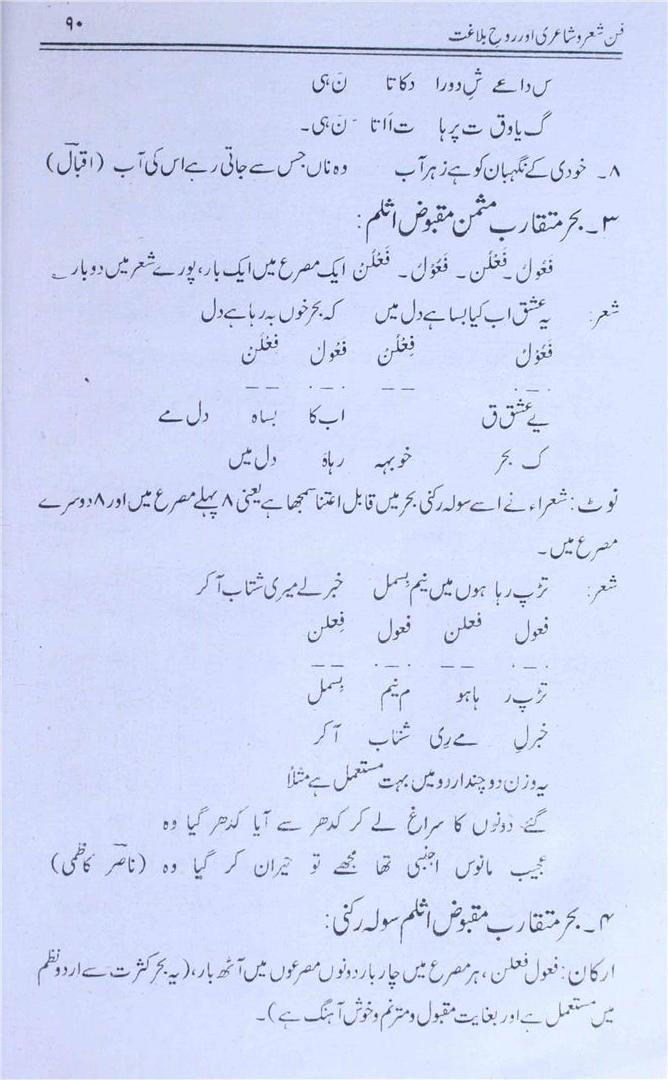 فن شعر و شاعری اور روحِ بلاغت
۹۰
س داعے شِ دورا دکاتا نَ ہی
گ یا وق ت پر ہا ت اَاتا نَ ہی۔
۸۔ خودی کے نگہبان کو ہے زہر آب وہ ناں جس سے جاتی رہے اس کی آب (اقبالؔ)
۳۔ بحر متقارب مثمن مقبوض اثلم:
فَعُولُ۔ فَعْلُن۔ فَعُوْلُ۔ فَعْلُنْ ایک مصرع میں ایک بار، پورے شعر میں دو بار
شعر: یہ عشق اب کیا بسا ہے دل میں کہ بحر خوں بہ رہا ہے دل
فَعُوْلُ فِعْلُنْ فَعُولُ فَعْلُنْ
. _ . _ _ . _ . _ _
یے عشق ق اب کا بساہ دل مے
ک بحر خو بہہ رہاہ دل میں
نوٹ: شعراء نے اسے سولہ رکنی بحر میں قابل اعتنا سمجھا ہے یعنی ۸ پہلے مصرع میں اور ۸ دوسرے
مصرع میں۔
شعر: تڑپ رہا ہوں میں نیم بسمل خبر لے میری شتاب آ کر
فعول فعلن فعول فِعلن
. _ . _ _ . _ . _ _
تڑپ ر ہا ہو م نیم بِسمل
خبر لِ مے ری شتاب آ کر
یہ وزن دو چند اردو میں بہت مستعمل ہے مثلاً
گئے دنوں کا سراغ لے کر کدھر سے آیا کدھر گیا وہ
عجیب مانوس اجنبی تھا مجھے تو حیران کر گیا وہ (ناصرؔ کاظمی)
۴۔ بحر متقارب مقبوض اثلم سولہ رکنی:
ارکان: فعول فعلن، ہر مصرع میں چار بار دونوں مصرعوں میں آٹھ بار، (یہ بحر کثرت سے اردو نظم
میں مستعمل ہے اور بغایت مقبول و مترنم و خوش آہنگ ہے)۔